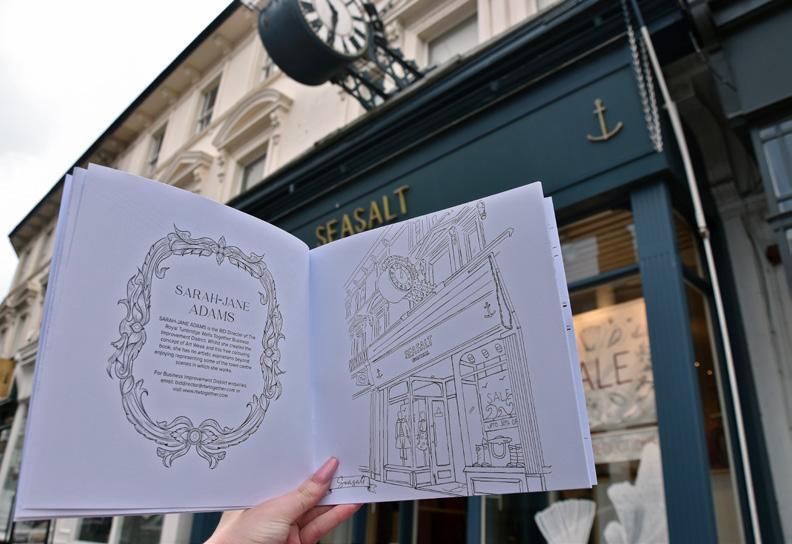 SEASALT
SARAH-JANE
ADAMS
SARAH-JANE ADAMS is the BID Director of The
Royal Tunbridge Wells Together Business
Improvement District. Whilst she created the
concept of Art Week and this free colouring
book, she has no artistic aspirations beyond
enjoying representing some of the town centre
scenes in which she works.
For Business Improvement District enquiries,
email: biddirector@rtwtogether.com or
visit www.rtwtogether.com
SEASALT
SALE
UPTO 50% OF
Seasalt
ALE